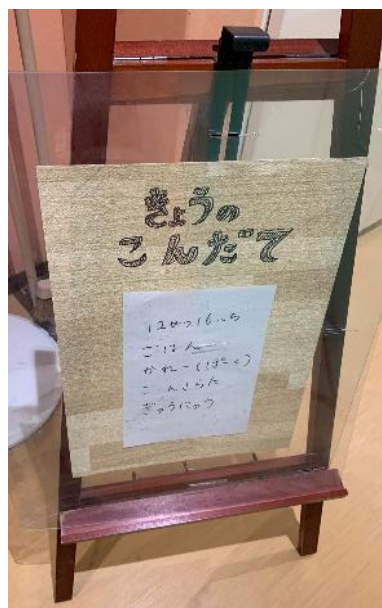 きょうの
こんだて
12がつ16にち
ごはん
かれー(ぽーく)
こーんさらだ
ぎゅうにゅう